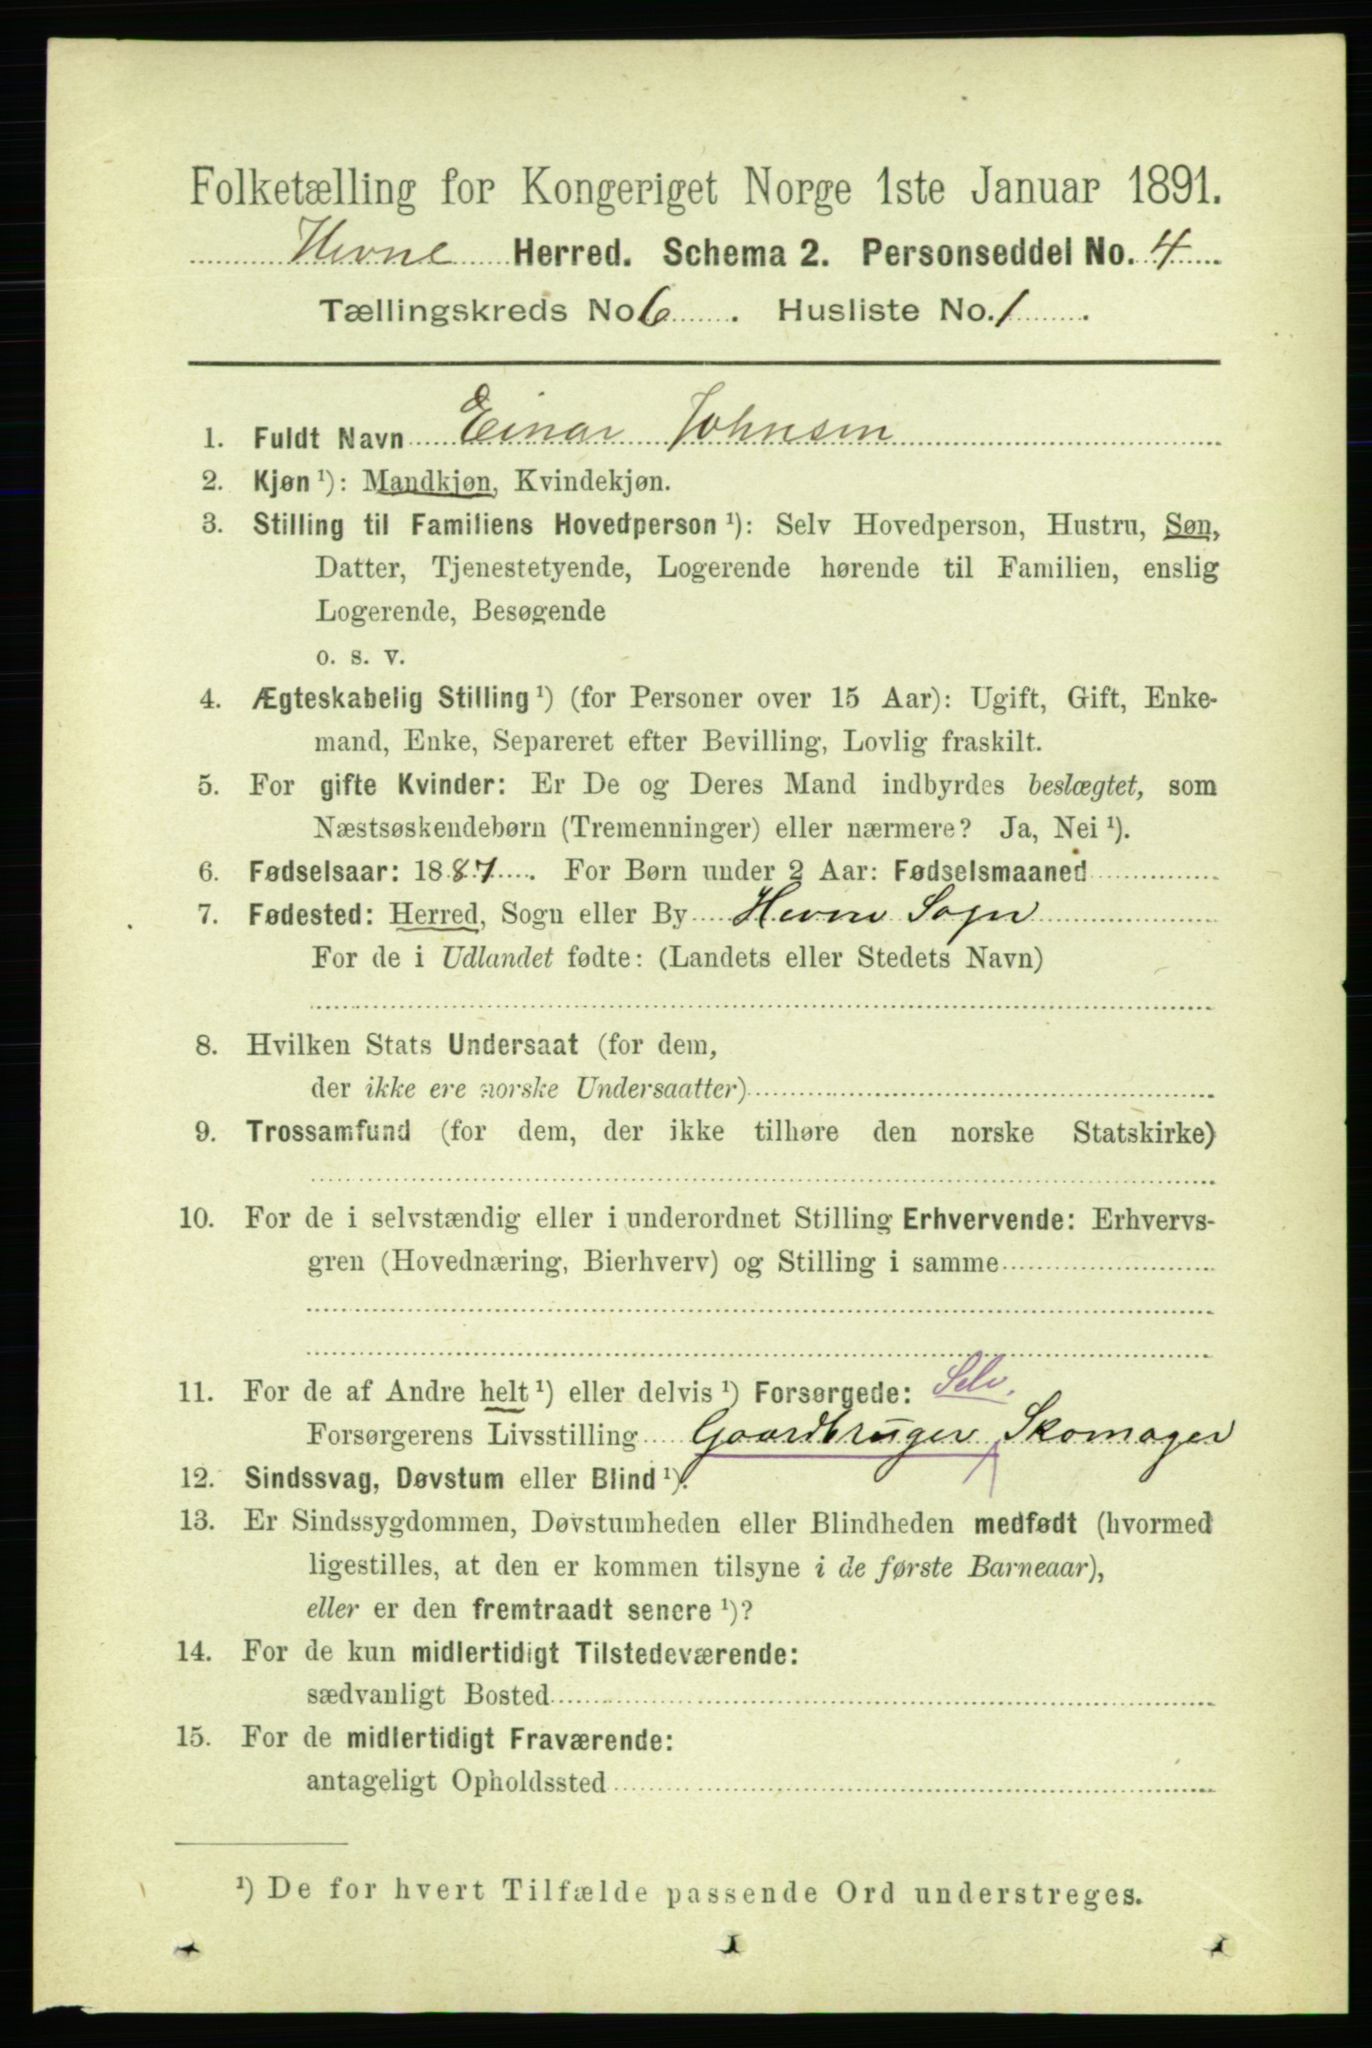 Folketælling for Kongeriget Norge 1ste Januar 1891.
Hevne Herred. Schema 2. Personseddel No. 4
Tællingskreds No 6. Husliste No. 1.
1. Fuldt Navn Einar Johnsen
2. Kjøn ¹): Mandkjøn, Kvindekjøn.
3. Stilling til Familiens Hovedperson ¹): Selv Hovedperson, Hustru, Søn,
Datter, Tjenestetyende, Logerende hørende til Familien, enslig
Logerende, Besøgende
o. s. v.
4. Ægteskabelig Stilling ¹) (for Personer over 15 Aar): Ugift, Gift, Enke-
mand, Enke, Separeret efter Bevilling, Lovlig fraskilt.
5. For gifte Kvinder: Er De og Deres Mand indbyrdes beslægtet, som
Næstsøskendebørn (Tremenninger) eller nærmere? Ja, Nei ¹).
6. Fødselsaar: 1887. For Børn under 2 Aar: Fødselsmaaned
7. Fødested: Herred, Sogn eller By Hevne Sogn
For de i Udlandet fødte: (Landets eller Stedets Navn)
8. Hvilken Stats Undersaat (for dem,
der ikke ere norske Undersaatter)
9. Trossamfund (for dem, der ikke tilhøre den norske Statskirke)
10. For de i selvstændig eller i underordnet Stilling Erhvervende: Erhvervs-
gren (Hovednæring, Bierhverv) og Stilling i samme
11. For de af Andre helt ¹) eller delvis ¹) Forsørgede: Selv.
Forsørgerens Livsstilling Gaardbruger, Skomager
12. Sindssvag, Døvstum eller Blind ¹).
13. Er Sindssygdommen, Døvstumheden eller Blindheden medfødt (hvormed
ligestilles, at den er kommen tilsyne i de første Barneaar),
eller er den fremtraadt senere ¹)?
14. For de kun midlertidigt Tilstedeværende:
sædvanligt Bosted
15. For de midlertidigt Fraværende:
antageligt Opholdssted
¹) De for hvert Tilfælde passende Ord understreges.